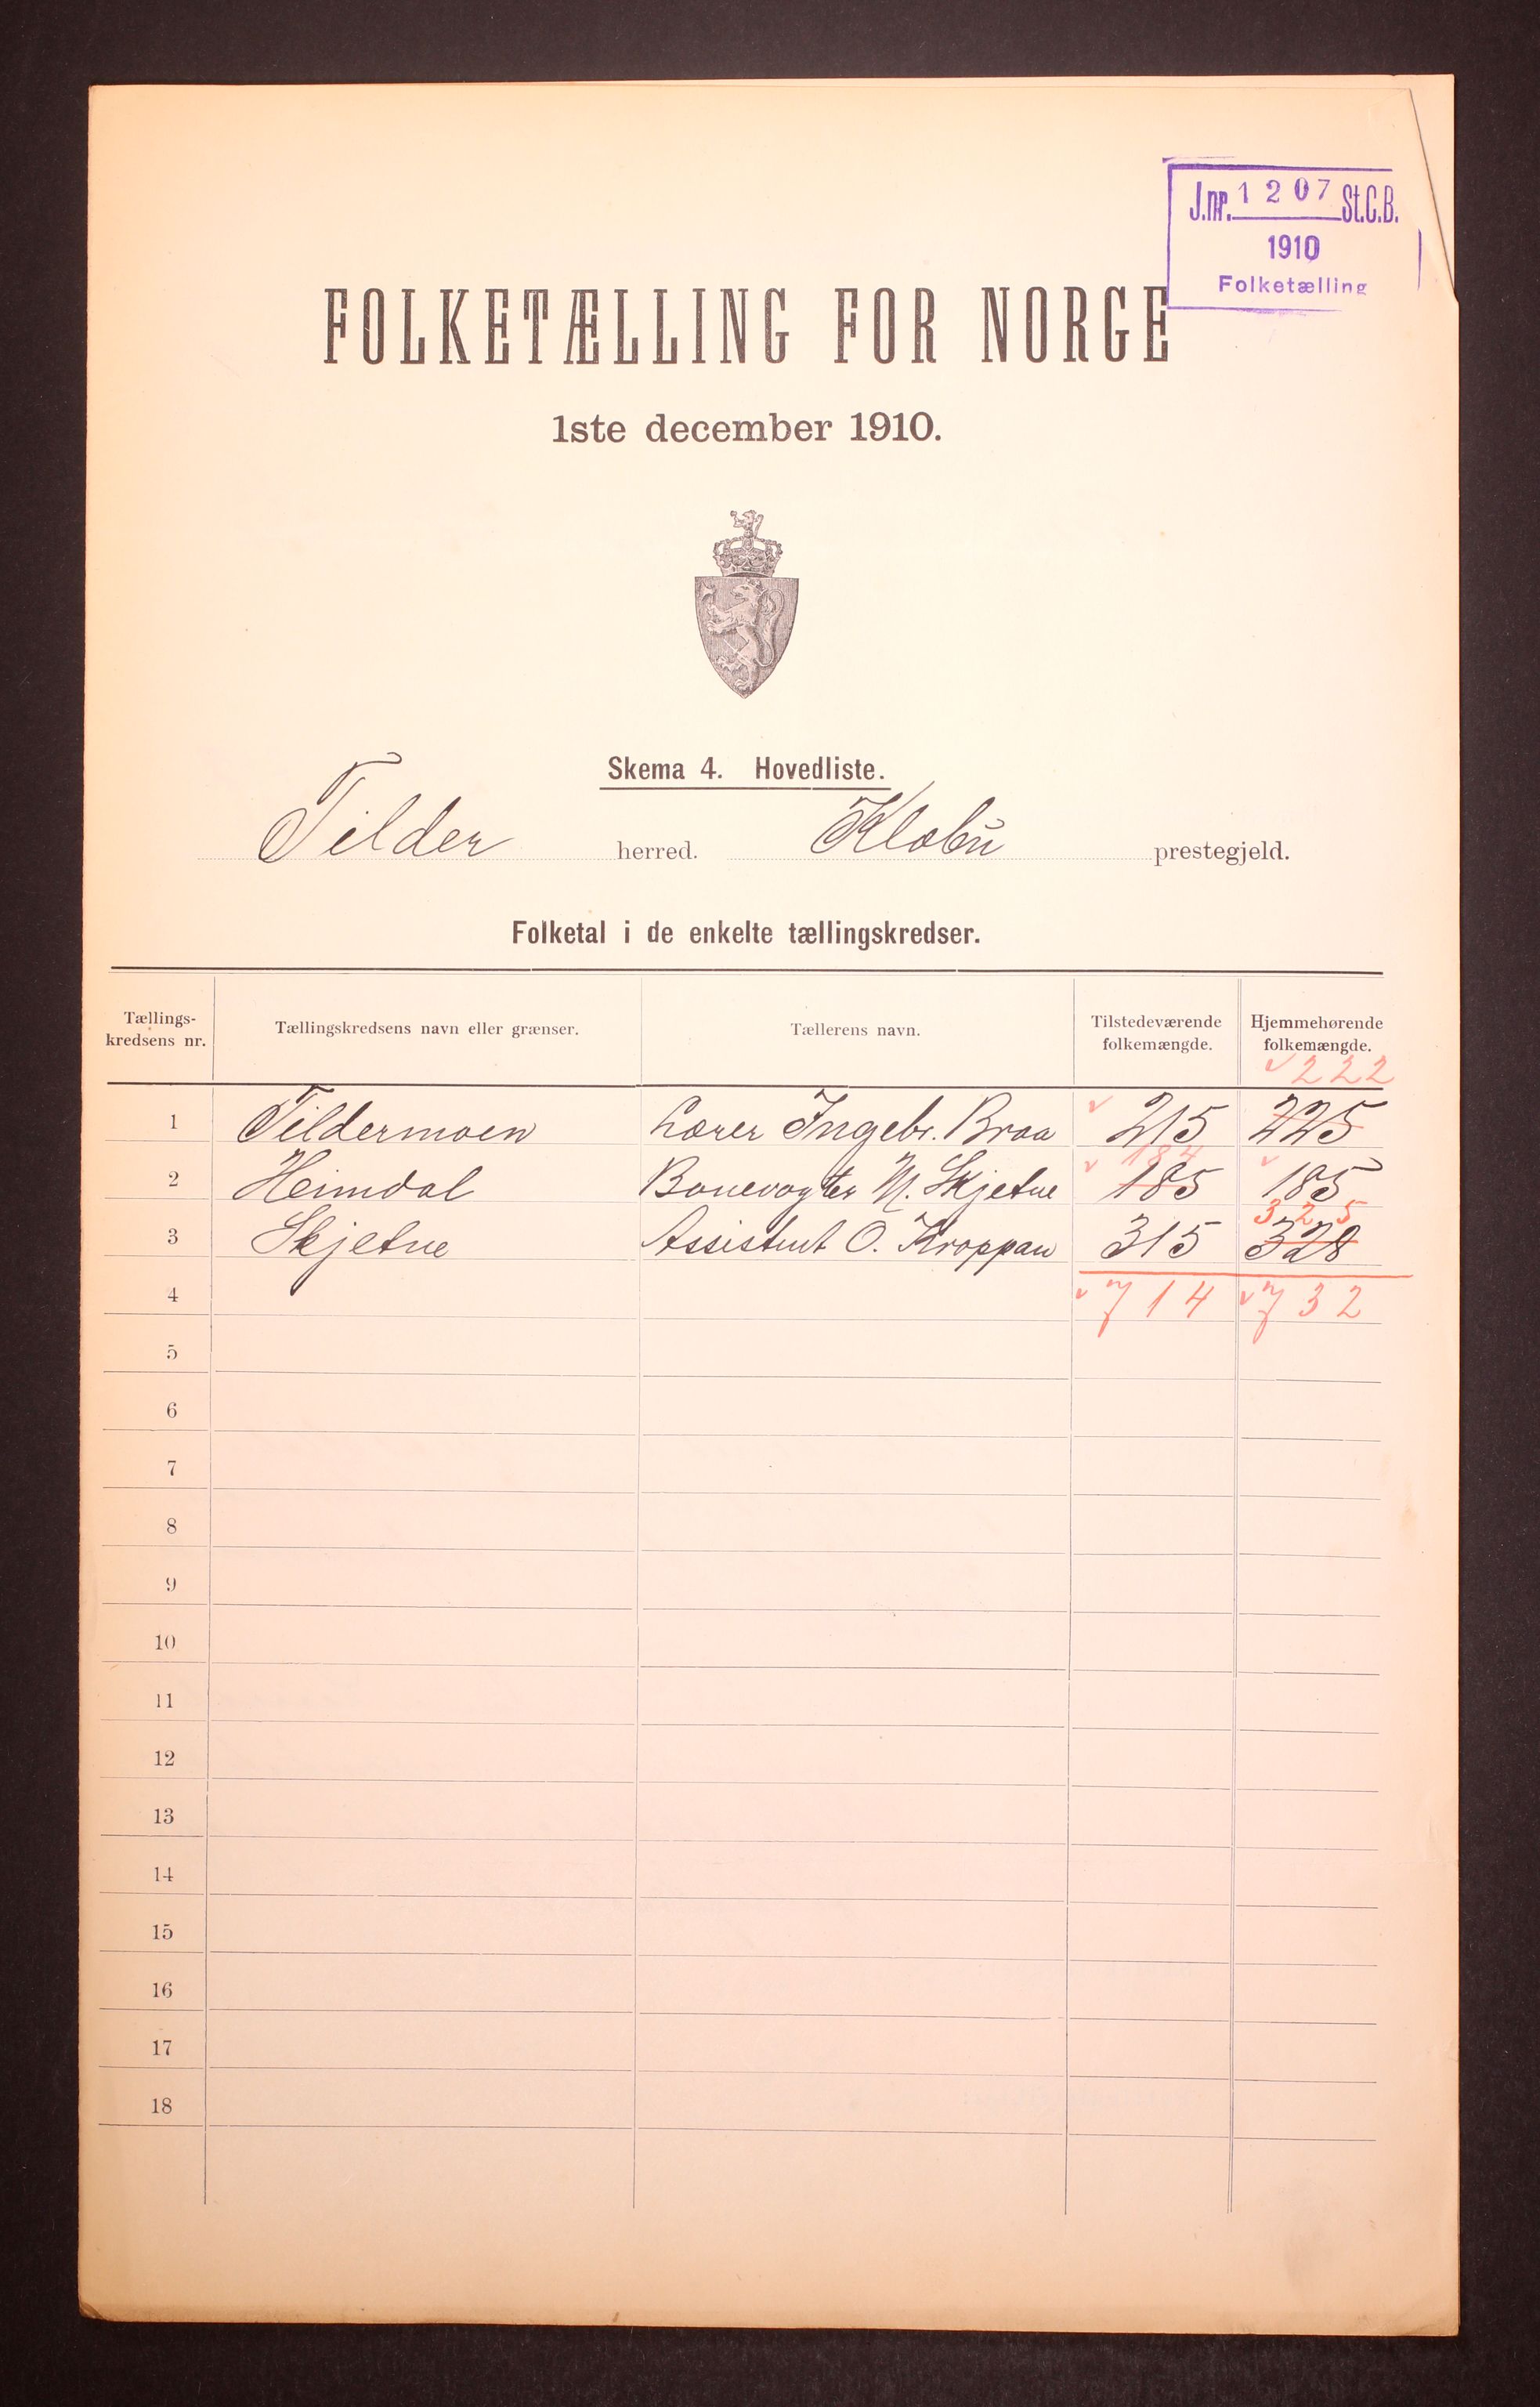 J.nr. 1207 St.C.B.
1910
Folketælling
FOLKETÆLLING FOR NORGE
1ste december 1910.
Skema 4. Hovedliste.
Tilder herred. Klæbu prestegjeld.
Folketal i de enkelte tællingskredser.
Tællings-kredsens nr. Tællingskredsens navn eller grænser. Tællerens navn. Tilstedeværende folkemængde. Hjemmehørende folkemængde.
222
1 Tildermoen Lærer Ingebr. Braa 215 225
184
2 Heimdal Banevogter N. Skjetne 185 185
325
3 Skjetne Assistent O. Kroppan 315 328
4 714 732
5
6
7
8
9
10
11
12
13
14
15
16
17
18